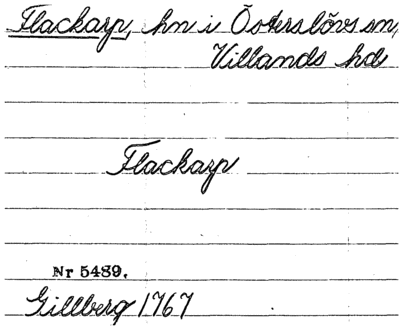 Flackarp, hn i Österslövs sn,
Villands hd
Flackarp
Nr 5489.
Gillberg 1767